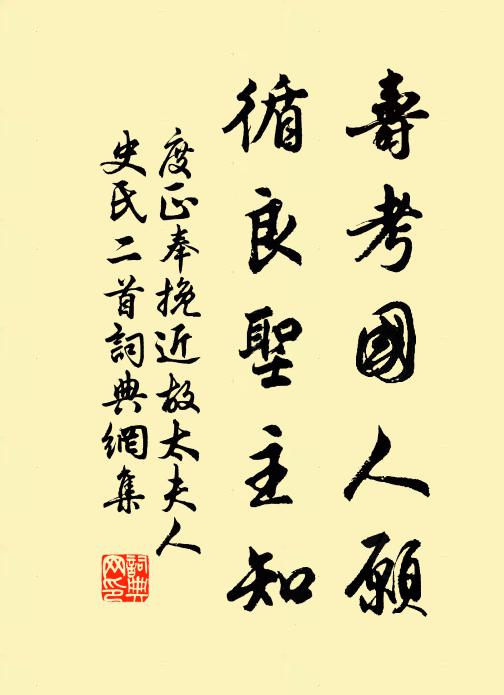 壽考國人願
循良聖主知
度正奉挽近故太夫人
史氏二首詞典網集
詞典网印